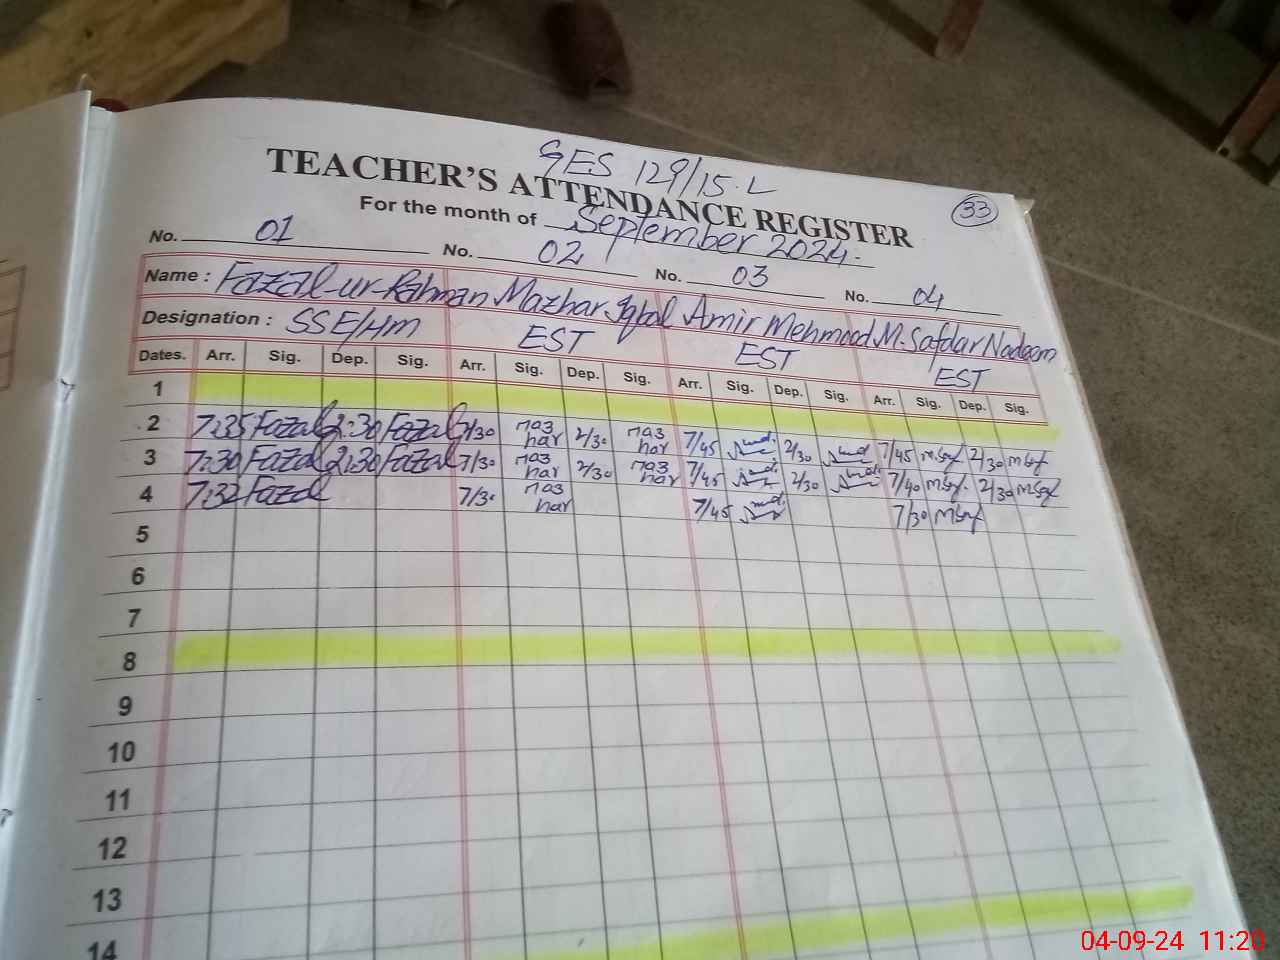 GES 129/15.L
TEACHER'S ATTENDANCE REGISTER
33
For the month of September 2024.
No. 01 No. 02 No. 03 No. 04
Name : Fazal-ur-Rahman Mazhar Iqbal Amir Mehmood M. Safdar Nadeem
Designation : SSE/Hm EST EST EST
Dates. Arr. Sig. Dep. Sig. Arr. Sig. Dep. Sig. Arr. Sig. Dep. Sig. Arr. Sig. Dep. Sig.
1
2 7:35 Fazal 2:30 Fazal 7/30 maz har 2/30 maz har 7/45 2/30 7/45 2/30
3 7:30 Fazal 2:30 Fazal 7/30 maz har 2/30 maz har 7/45 2/30 7/40 2/30
4 7:32 Fazal 7/30 maz har 7/45 7/30
5
6
7
8
9
10
11
12
13
14
04-09-24 11:20